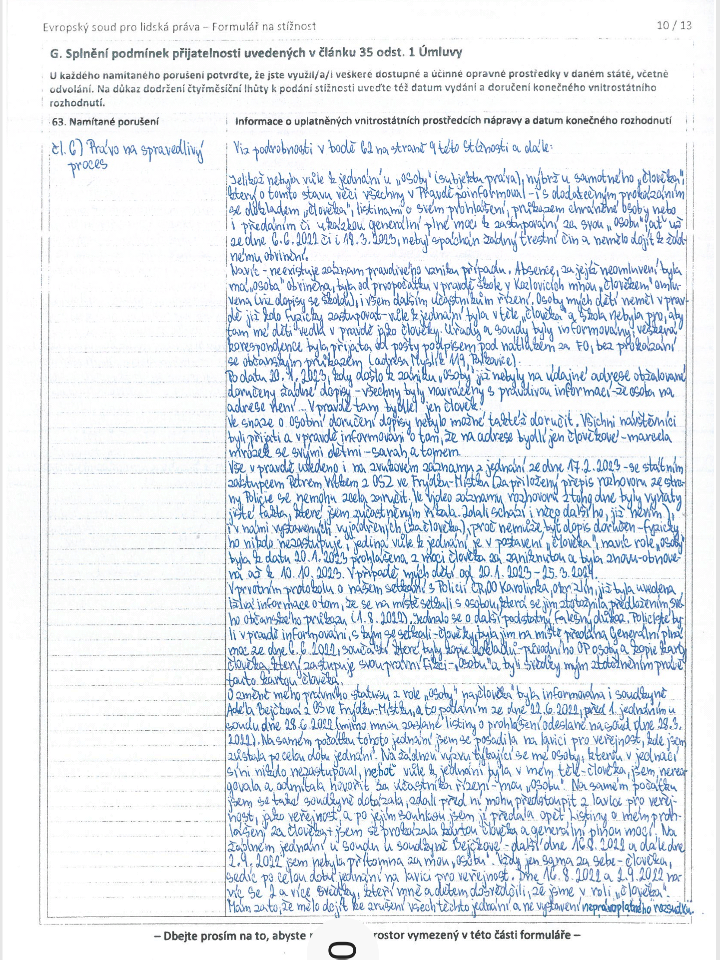 Evropský soud pro lidská práva – Formulář na stížnost
10 / 13
G. Splnění podmínek přijatelnosti uvedených v článku 35 odst. 1 Úmluvy
U každého namítaného porušení potvrďte, že jste využil/a/i veškeré dostupné a účinné opravné prostředky v daném státě, včetně
odvolání. Na důkaz dodržení čtyřměsíční lhůty k podání stížnosti uveďte též datum vydání a doručení konečného vnitrostátního
rozhodnutí.
63. Namítané porušení
Informace o uplatněných vnitrostátních prostředcích nápravy a datum konečného rozhodnutí
čl. 6) Právo na spravedlivý
proces
Viz podrobnosti v bodě 62 na straně 9 této stížnosti a dále:
Jelikož nebyla vůle k jednání u „osoby" (subjektu práva), nýbrž u samotného „člověka",
který o tomto stavu věcí všechny v Pravdě poinformoval - i s dodatečným prokázáním
se dokladem „člověka", listinami o svém prohlášení, průkazem chráněné osoby nebo
i předáním či ukázkou generální plné moci k zastupování za svou „osobu" již
ze dne 6.6.2022 či 18.3.2023, nebyl spáchán žádný trestní čin a nemělo dojít k žád-
nému obvinění.
Navíc - neexistuje záznam pravdivého vzniku případu. Absence, za jejíž neomluvení byla
má „osoba" obviněna, byla od prvopočátku v pravdě škole v Kozlovicích mnou „člověkem" omlu-
vena (viz dopisy se školou), i všem dalším účastníkům řízení. Osoby mých dětí neměl v prav-
dě již kdo fyzicky zastupovat - vůle k jednání byla v těle „člověka" a škola nebyla pro, aby
tam mé děti vedli v pravdě jako člověky. Úřady a soudy byly informovány, veškerá
korespondence byla přijata od pošty podpisem pod nátlakem za FO, bez prokázání
se občanským průkazem (adresa Myslík 119, Palkovice).
Po datu 20.1.2023, kdy došlo k zániku „osoby" již nebyly na údajné adrese obžalované
doručeny žádné dopisy - všechny byly navráceny s pravdivou informací - že osoba na
adrese není... V pravdě tam bydlel jen člověk.
Ve snaze o osobní doručení dopisy nebylo možné taktéž doručit. Všichni návštěvníci
byli přijati a v pravdě informováni o tom, že na adrese bydlí jen člověkové - marcela
mrůzek se svými dětmi - sarah a tomem.
Vše v pravdě uvedeno i na zvukovém záznamu z jednání ze dne 17.2.2023 - se státním
zástupcem Petrem Vítkem z OSZ ve Frýdku-Místku (za přiložený přepis rozhovoru ze stra-
ny Policie se nemohu zcela zaručit. Ve video záznamu rozhovoru z toho dne byly vyňaty
jisté fakta, které jsem zúčastněným říkala. Zdali schází i něco dalšího, již nevím),
i v námi vystavených vyjádřeních (za člověka), proč nemůže být dopis doručen - fyzicky
ho nikdo nezastupuje, jediná vůle k jednání je v postavení „člověka", navíc role „osoby"
byla k datu 20.1.2023 prohlášena z moci člověka za zaniknutou a byla znovu-obnove-
ná až k 10.10.2023. V případě mých dětí od 20.1.2023 - 25.3.2024.
V prvotním protokolu o našem setkání s Policií ČR, OO Karolinka, okr. Zlín, již byla uvedena
lživá informace o tom, že se na místě setkali s osobou, která se jim ztotožnila předložením své-
ho občanského průkazu (1.8.2022). Jednalo se o další podstatný falešný důkaz. Policisté by-
li v pravdě informováni, s kým se setkali - člověky, byla jim na místě předána Generální plná
moc ze dne 6.6.2022, součástí které byly kopie dokladů - původního OP osoby a kopie karty
člověka, který zastupuje svou právní fikci - „osobu" a byli svědky mým ztotožněním právě
touto kartou člověka.
O změně mého právního statusu z role „osoby" na „člověka" byla informována i soudkyně
Adéla Bejčková z OS ve Frýdku-Místku, a to podáním ze dne 22.6.2022, před 1. jednáním u
soudu dne 28.6.2022 (mimo mnou zaslané listiny o prohlášení odeslané na soud dne 28.3.
2022). Na samém počátku tohoto jednání jsem se posadila na lavici pro veřejnost, kde jsem
zůstala po celou dobu jednání. Na žádnou výzvu týkající se mé osoby, kterou v jednací
síni nikdo nezastupoval, neboť vůle k jednání byla v mém těle - člověka, jsem nerea-
govala a odmítala hovořit za účastníka řízení - mou „osobu". Na samém počátku
jsem se také soudkyně dotázala, zdali před ní mohu předstoupit z lavice pro veřej-
nost, jako veřejnost, a po jejím souhlasu jsem jí předala opět Listiny o mém proh-
lášení za člověka + jsem se prokázala kartou člověka a generální plnou mocí. Na
žádném jednání u soudu u soudkyně Bejčkové - další dne 16.8.2022 a dále dne
2.9.2022 jsem nebyla přítomna za mou „osobu". Vždy jen sama za sebe - člověka,
sedíc po celou dobu jednání na lavici pro veřejnost. Dne 16.8.2022 a 2.9.2022 na-
víc se 2 a více svědky, kteří mně a dětem dosvědčili, že jsme v roli „člověka".
Mám za to, že mělo dojít ke zrušení všech těchto jednání a ne vystavení nepravoplatného rozsudku.
– Dbejte prosím na to, abyste
rostor vymezený v této části formuláře –